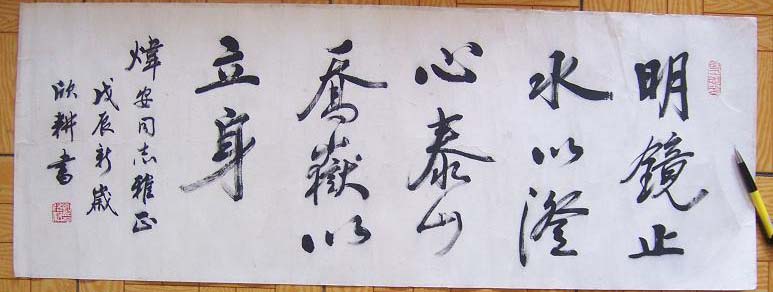 明鏡止
水以澄
心泰山
喬嶽以
立身
煒安同志雅正
戊辰新歲
欣耕書